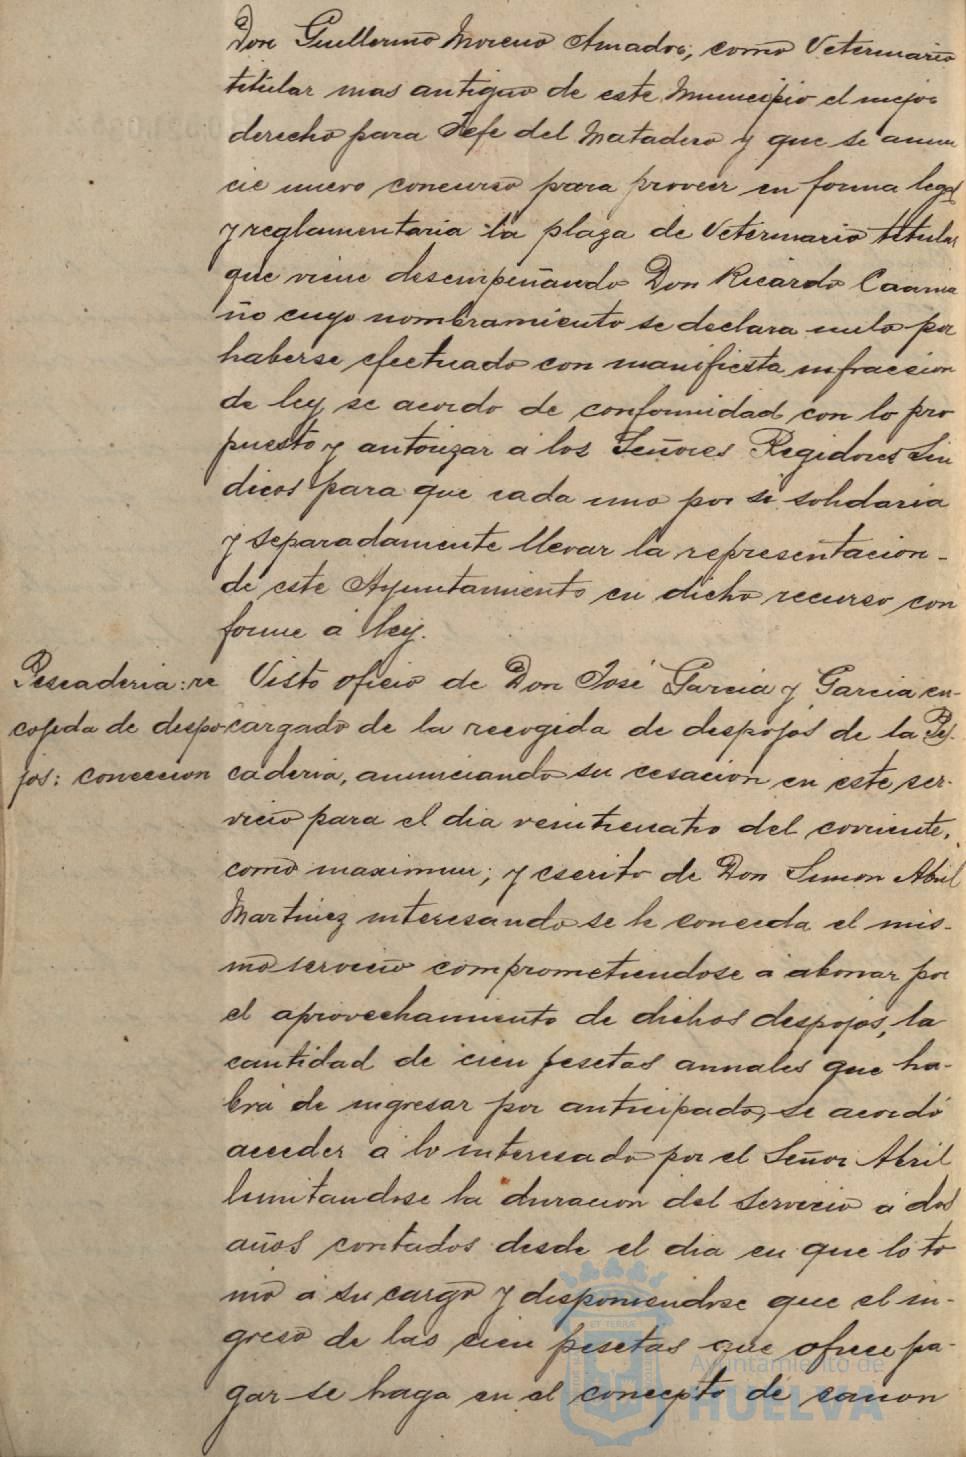 Don Guillermo Moreno Amador, como Veterinario
titular mas antiguo de este Municipio el mejor
derecho para Jefe del Matadero y que se anun
cie nuevo concurso para proveer en forma legal
y reglamentaria la plaza de Veterinario titular
que viene desempeñando Don Ricardo Caama
ño cuyo nombramiento se declara nulo por
haberse efectuado con manifiesta infraccion
de ley se acordo de conformidad con lo pro
puesto y autorizar a los Señores Regidores Sin
dicos para que cada uno por si solidaria
y separadamente llevar la representacion-
de este Ayuntamiento en dicho recurso con
forme á ley.
Pescaderia: re
cojida de despo
jos: conceccion
Visto oficio de Don José Garcia y Garcia en-
cargado de la recogida de despojos de la Pes-
caderia, anunciando su cesacion en este ser-
vicio para el dia veinticuatro del corriente,
como maximun; y escrito de Don Simon Abril
Martinez interesando se le conceda el mis-
mo servicio comprometiendose a abonar por
el aprovechamiento de dichos despojos, la
cantidad de cien pesetas anuales que ha-
brá de ingresar por anticipado, se acordó
acceder a lo interesado por el Señor Abril
limitandose la duracion del servicio a dos
años contados desde el dia en que lo to
mó a su cargo y disponiendose que el in-
greso de las cien pesetas que ofrece pa-
gar se haga en el concepto de canon
Ayuntamiento de
HUELVA